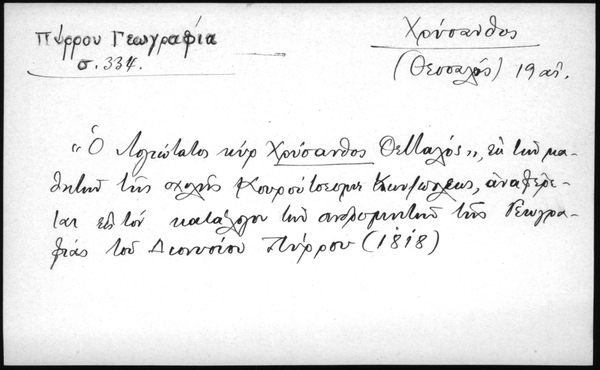 Πύρρου Γεωγραφία
σ. 334.
Χρύσανθος
(Θεσσαλός) 19 αἰ.
"Ὁ Λογιώτατος κὺρ Χρύσανθος Θετταλός", ἐκ τῶν μα-
θητῶν τῆς σχολῆς Κουρούτσεσμε Κων/πόλεως, ἀναφέρε-
ται εἰς τὸν κατάλογον τῶν συνδρομητῶν τῆς Γεωγρα-
φίας τοῦ Διονυσίου Πύρρου (1818)